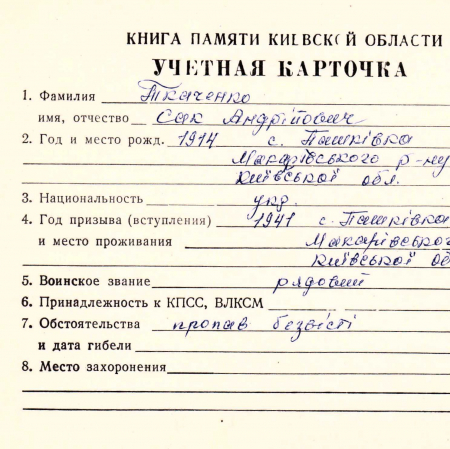 КНИГА ПАМЯТИ КИЕВСКОЙ ОБЛАСТИ
УЧЕТНАЯ КАРТОЧКА
1. Фамилия Ткаченко
имя, отчество Сак Андрійович
2. Год и место рожд. 1914 с. Пашківка
Макарівського р-ну
Київської обл.
3. Национальность укр.
4. Год призыва (вступления) 1941 с. Пашківка
и место проживания Макарівського
Київської об
5. Воинское звание рядовий
6. Принадлежность к КПСС, ВЛКСМ
7. Обстоятельства пропав безвісті
и дата гибели
8. Место захоронения